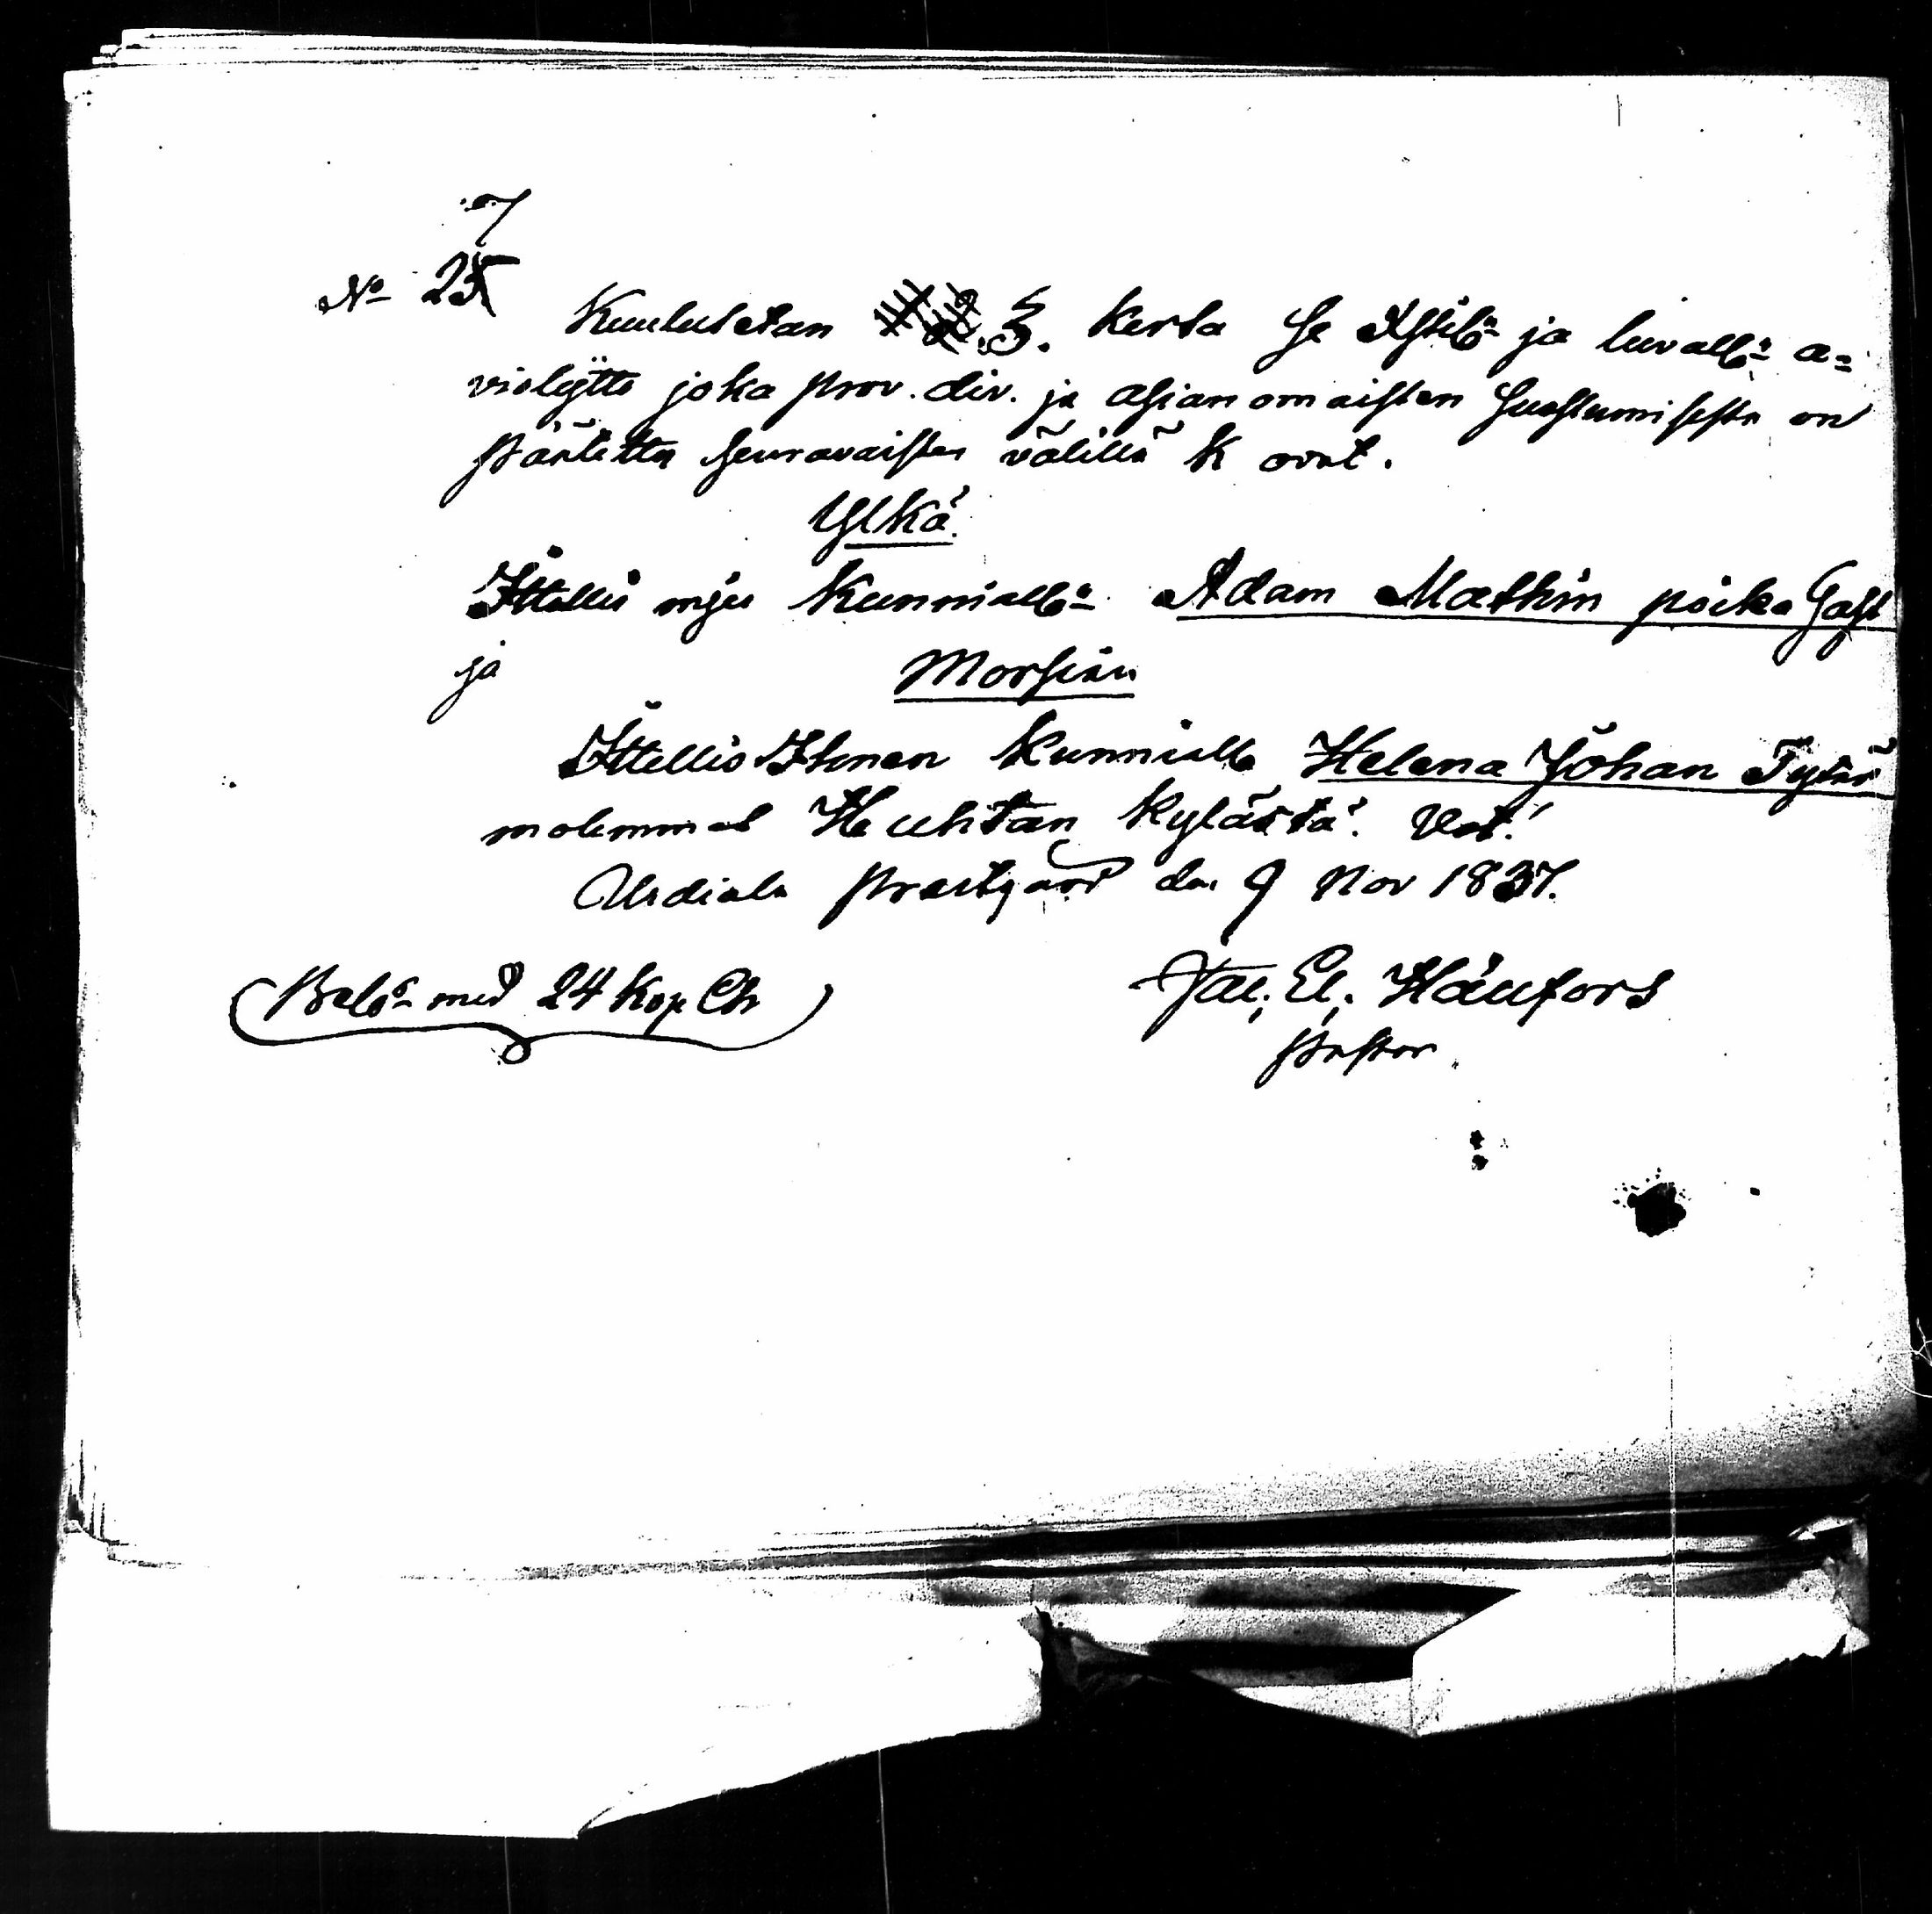 7
No 25
Kuulutetan 3. kerta se Xstil:n ja luvall:n a=
violijtto joka prov. div. ja asianomaisten suostumisesta on
päätetty seuravaisten välillä k ovat.
Ylkä.
Ittellis mjes kunniall:n Adam Mathin poika Gast
ja
Morsian
Ittellis Ihmen kunniall Helena Johan Tytär
molemmat Huhtan kylästä. Vert!
Urdiala Prestgård den 9 Nov 1837.
Jac. El. Häufors
Pastor
Bel:s med 24 Kop Ch